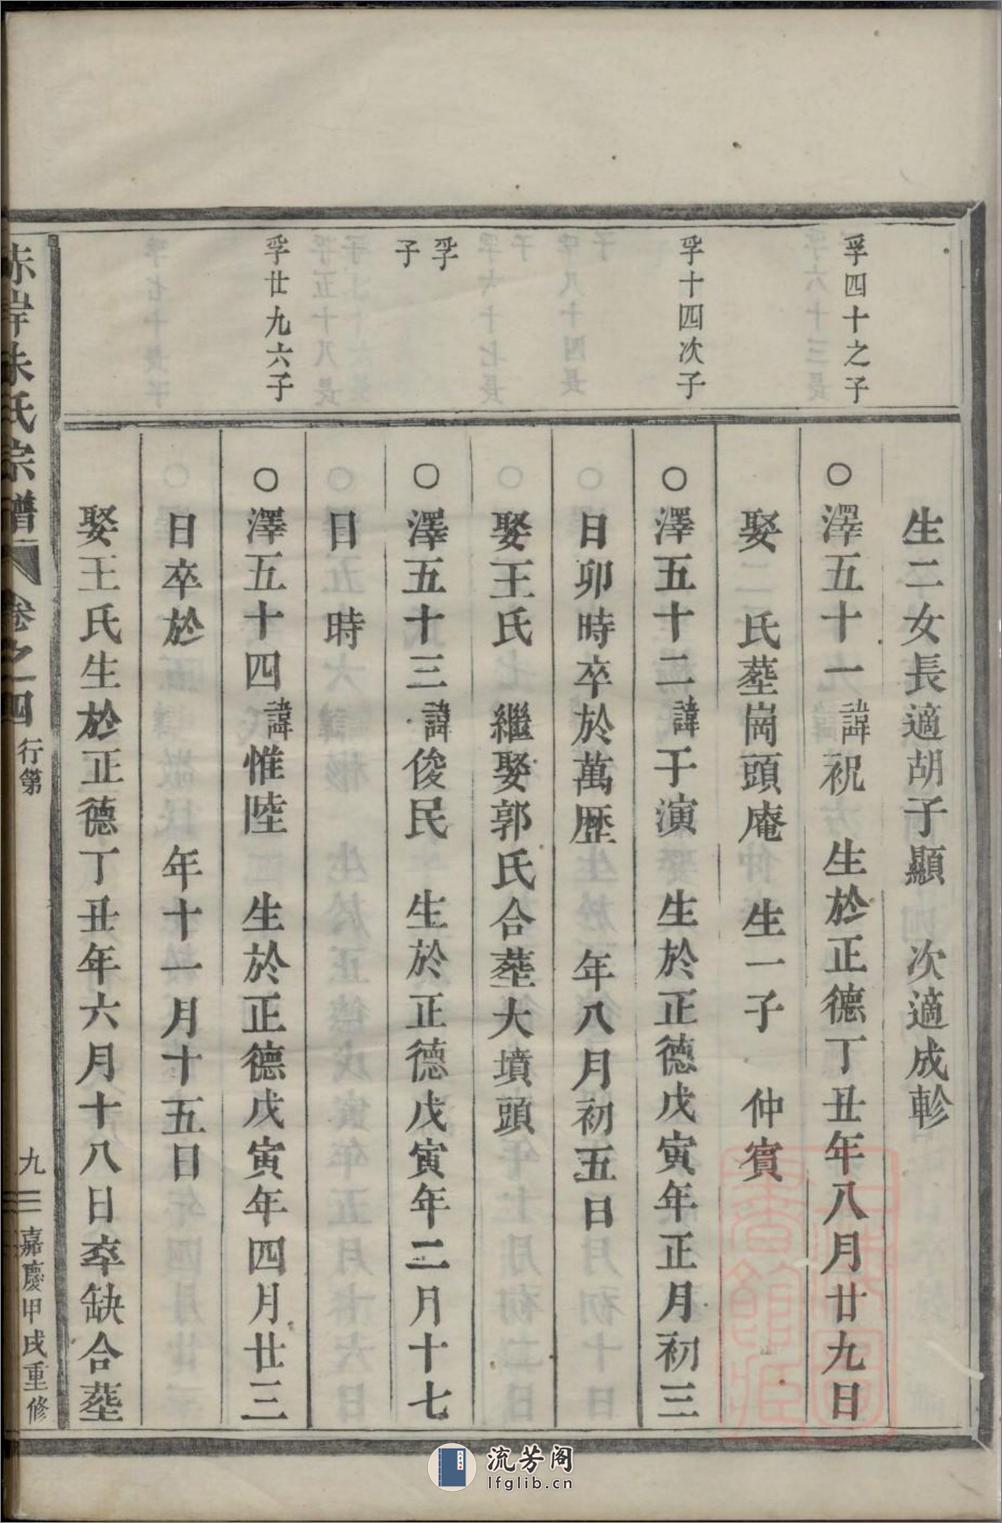 孚四十之子
孚十四次子
孚
子
孚廿九六子
生二女長適胡子顯　次適成軫
○澤五十一諱祝　生於正德丁丑年八月廿九日
娶　氏塟崗頭庵　生一子　仲賓
○澤五十二諱于演　生於正德戊寅年正月初三
日卯時卒於萬歷　年八月初五日
娶王氏　繼娶郭氏合塟大墳頭
○澤五十三諱俊民　生於正德戊寅年二月十七
日　時
○澤五十四諱惟陸　生於正德戊寅年四月廿三
日卒於　年十一月十五日
娶王氏生於正德丁丑年六月十八日卒缺合塟
赤岸朱氏宗譜　卷之四　行第　九　嘉慶甲戌重修
流芳阁
lfglib.cn